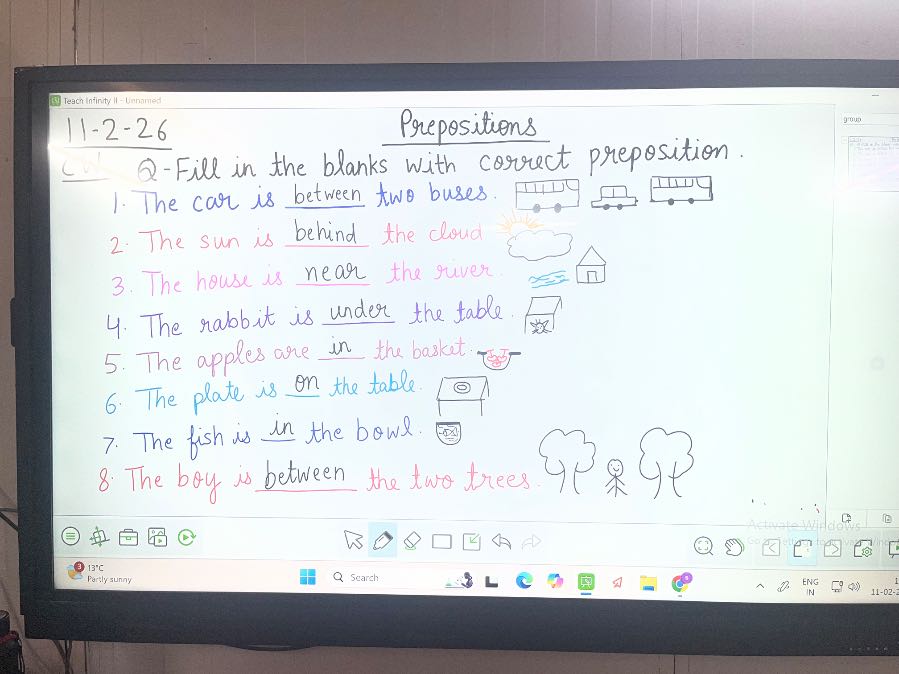 Teach Infinity II - Unnamed
group
11-2-26
Prepositions
CW Q-Fill in the blanks with correct preposition.
1. The car is between two buses.
2. The sun is behind the cloud
3. The house is near the river.
4. The rabbit is under the table.
5. The apples are in the basket.
6. The plate is on the table.
7. The fish is in the bowl.
8. The boy is between the two trees.
Activate Windows
3
13°C
Partly sunny
Search
ENG
IN